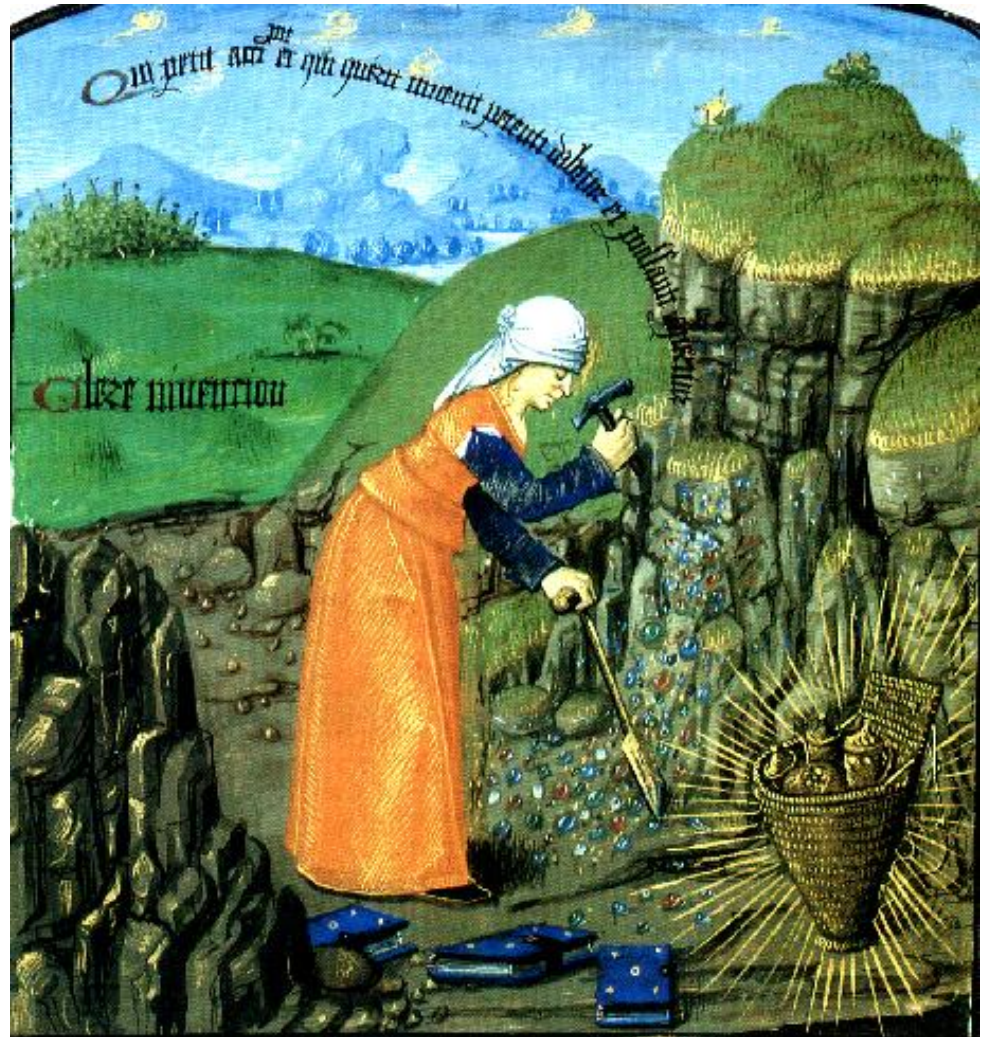 Qui petit accipit et qui querit inuenit petenti dabitur et pulsanti aperietur
Clere inuencion